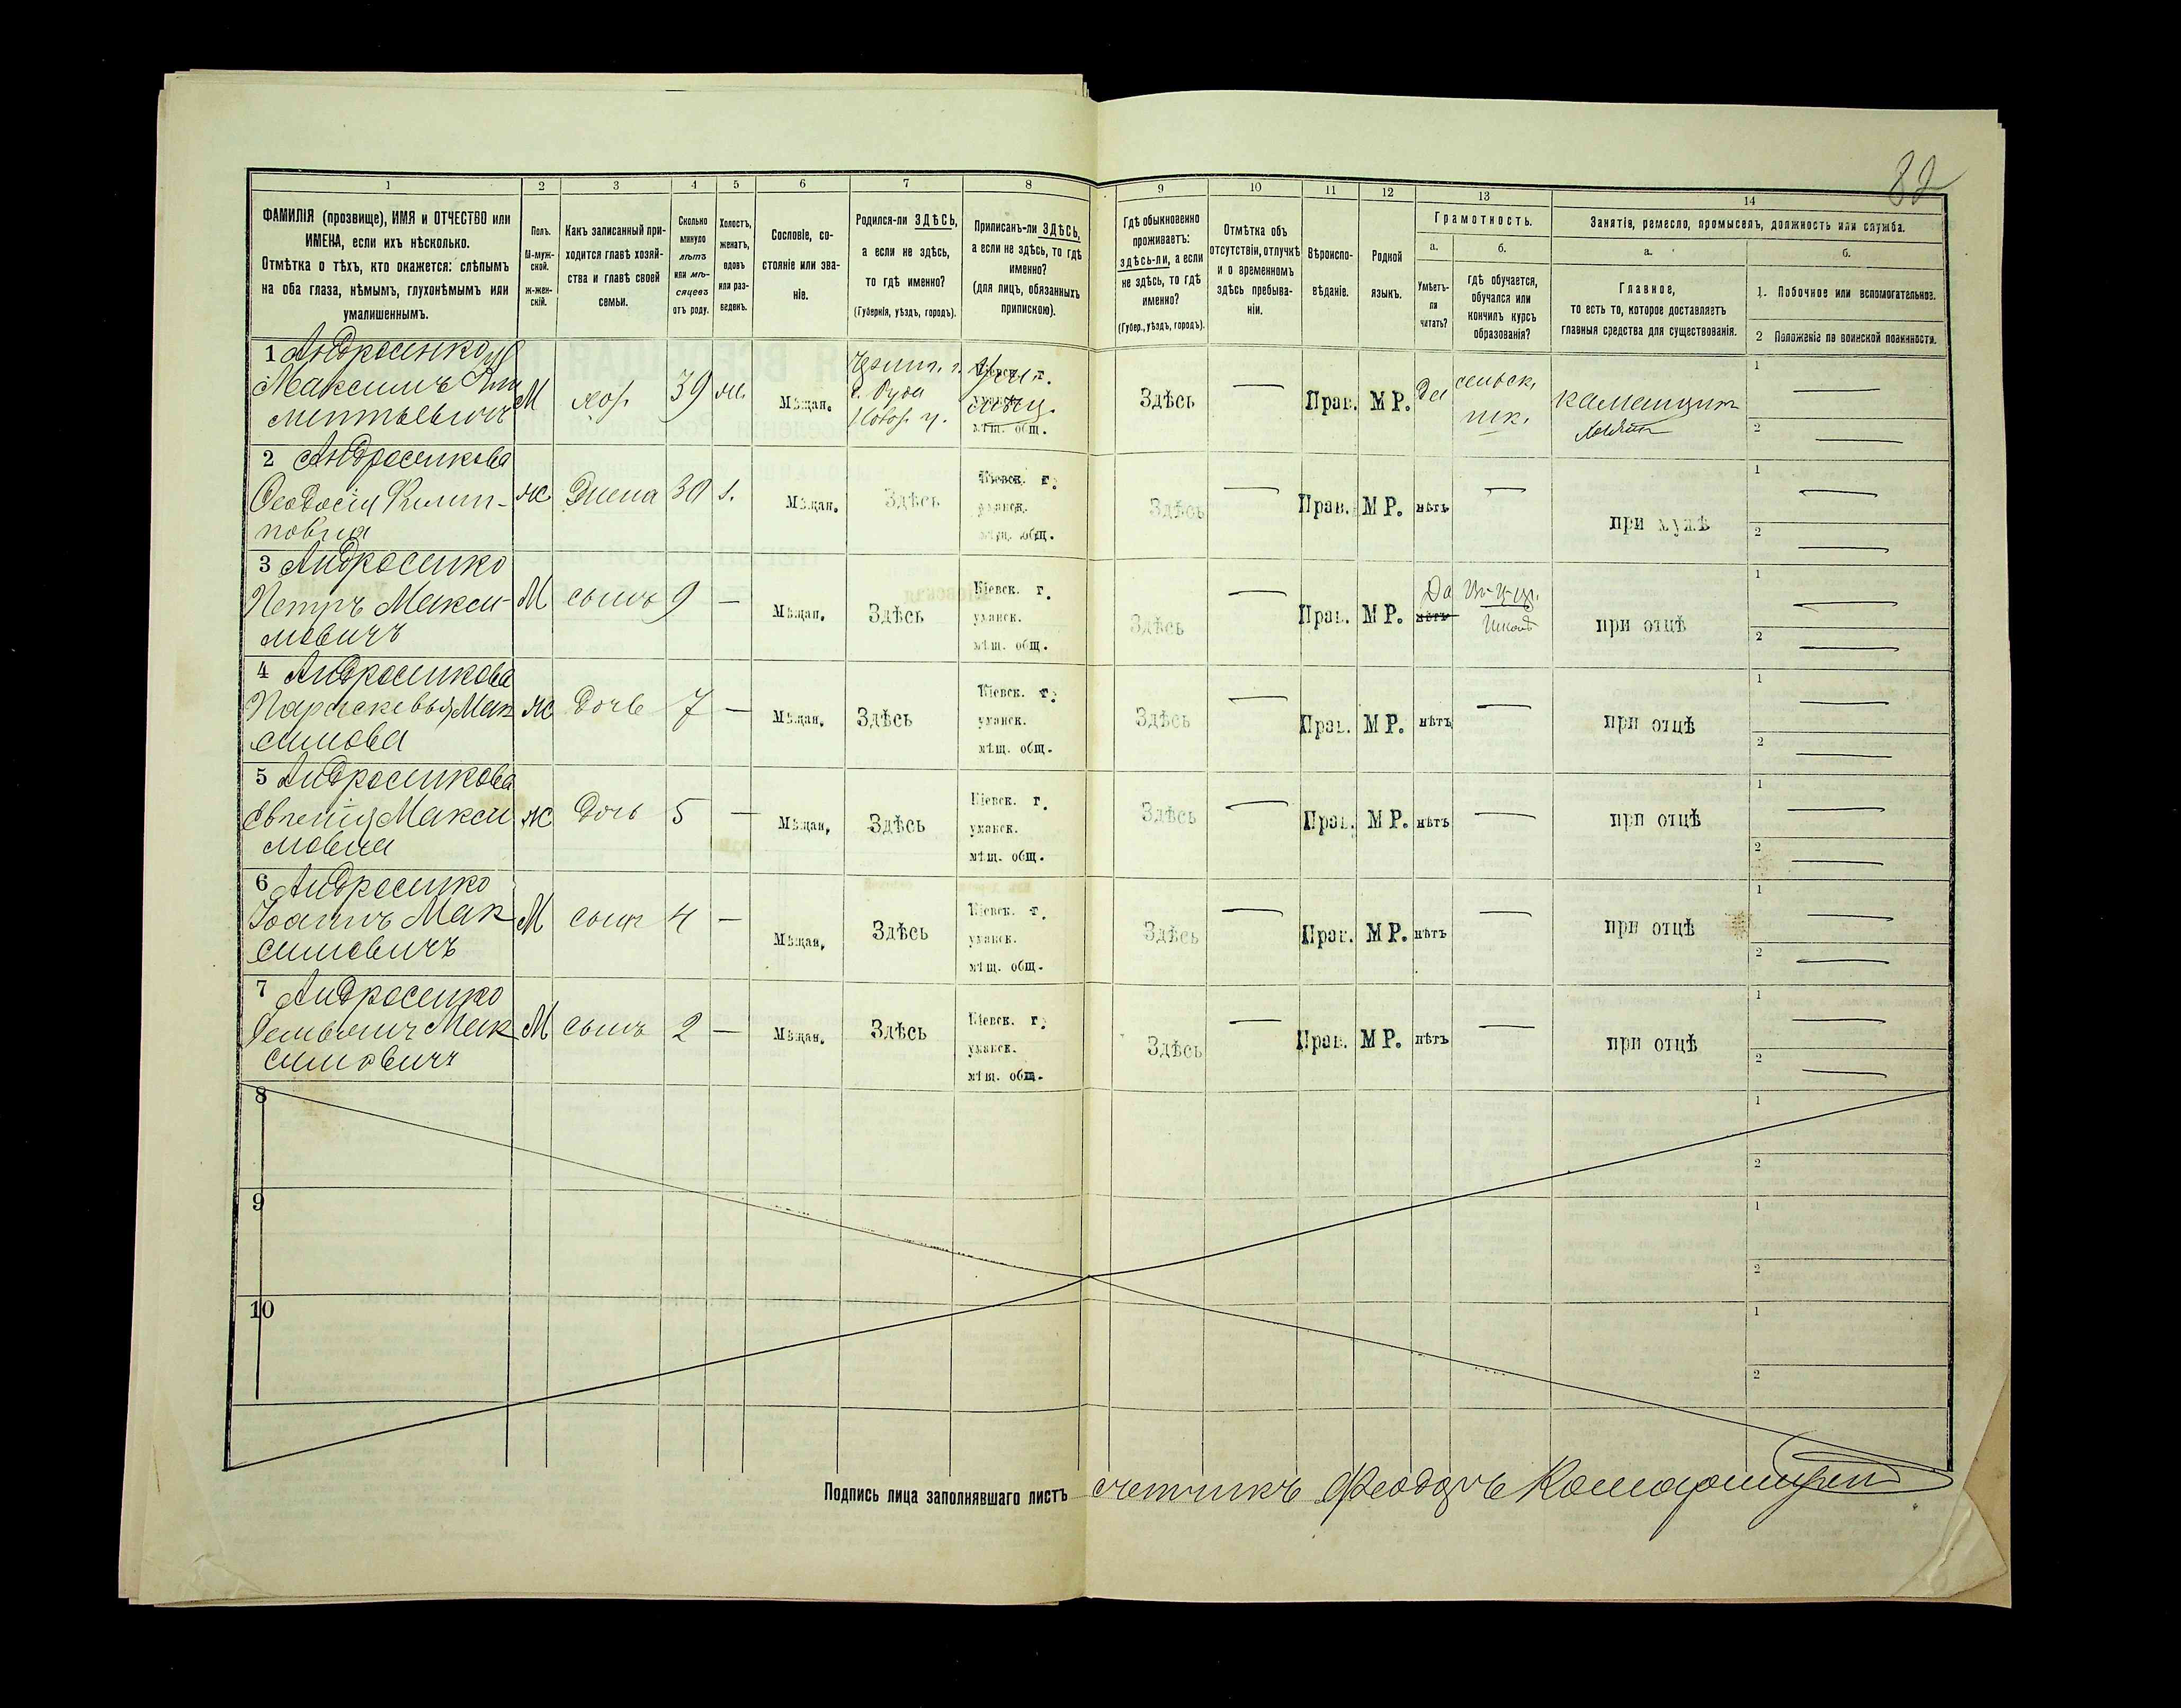 82
1 2 3 4 5 6 7 8 9 10 11 12 13 14
ФАМИЛІЯ (прозвище), ИМЯ и ОТЧЕСТВО или
ИМЕНА, если ихъ нѣсколько.
Отмѣтка о тѣхъ, кто окажется: слѣпымъ
на оба глаза, нѣмымъ, глухонѣмымъ или
умалишеннымъ.
Полъ.
М-муж-
ской.
Ж-жен-
скій.
Какъ записанный при-
ходится главѣ хозяй-
ства и главѣ своей
семьи.
Сколько
минуло
лѣтъ
или мѣ-
сяцевъ
отъ роду.
Холостъ,
женатъ,
вдовъ
или раз-
веденъ.
Сословіе, со-
стояніе или зва-
ніе.
Родился-ли ЗДѢСЬ,
а если не здѣсь,
то гдѣ именно?
(Губернія, уѣздъ, городъ).
Приписанъ-ли ЗДѢСЬ,
а если не здѣсь, то гдѣ
именно?
(для лицъ, обязанныхъ
припискою).
Гдѣ обыкновенно
проживаетъ:
здѣсь-ли, а если
не здѣсь, то гдѣ
именно?
(Губер., уѣздъ, городъ).
Отмѣтка объ
отсутствіи, отлучкѣ
и о временномъ
здѣсь пребыва-
ніи.
Вѣроиспо-
вѣданіе.
Родной
языкъ.
Грамотность.
а.
Умѣетъ-
ли
читать?
б.
гдѣ обучается,
обучался или
кончилъ курсъ
образованія?
Занятія, ремесло, промыселъ, должность или служба.
а.
Главное,
то есть то, которое доставляетъ
главныя средства для существованія.
б.
1. Побочное или вспомогательное.
2 Положеніе по воинской повинности.
1 Андросенко
Максимъ
М хоз. 39 ж. Мѣщан.
с. Руда
Здѣсь — Прав. М Р. Да сельск.
шк.
1 —
2 —
2 Андросенкова
Феодосія Филип-
повна
ж жена 30 з. Мѣщан. Здѣсь
Кіевск. г.
уманск.
мѣщ. общ.
Здѣсь — Прав. М Р. нѣтъ — при мужѣ
1 —
2 —
3 Андросенко
Петръ Макси-
мовичъ
М сынъ 9 — Мѣщан. Здѣсь
Кіевск. г.
уманск.
мѣщ. общ.
Здѣсь — Прав. М Р. Да нѣтъ
при отцѣ
1 —
2 —
4 Андросенкова
Параскевья Мак
симова
ж дочь 7 — Мѣщан. Здѣсь
Кіевск. г.
уманск.
мѣщ. общ.
Здѣсь — Прав. М Р. нѣтъ — при отцѣ
1 —
2 —
5 Андросенкова
Евгенія Макси
мовна
ж дочь 5 — Мѣщан. Здѣсь
Кіевск. г.
уманск.
мѣщ. общ.
Здѣсь — Прав. М Р. нѣтъ — при отцѣ
1 —
2 —
6 Андросенко
Іоаннъ Мак
симовичъ
М сынъ 4 — Мѣщан. Здѣсь
Кіевск. г.
уманск.
мѣщ. общ.
Здѣсь — Прав. М Р. нѣтъ — при отцѣ
1 —
2 —
7 Андросенко
Мак
симовичъ
М сынъ 2 — Мѣщан. Здѣсь
Кіевск. г.
уманск.
мѣщ. общ.
Здѣсь — Прав. М Р. нѣтъ — при отцѣ
1 —
2 —
8
1
2
9
1
2
10
1
2
Подпись лица заполнявшаго листъ счетчикъ Феодоръ